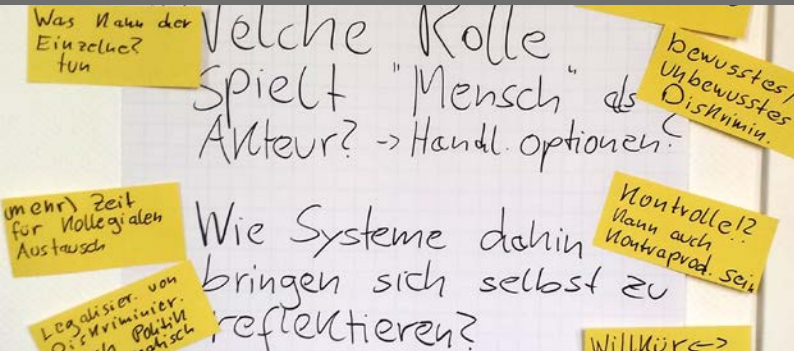 Was kann der
Einzelne?
tun
Welche Rolle
spielt "Mensch" als
Akteur? -> Handl. optionen?
bewusstes/
unbewusstes
Diskrimin.
(mehr) Zeit
für kollegialen
Austausch
Wie Systeme dahin
bringen sich selbst zu
reflektieren?
Kontrolle!?
kann auch
kontraprod. sein
Legalisier. von
Diskriminier.
Politik
Willkür <->